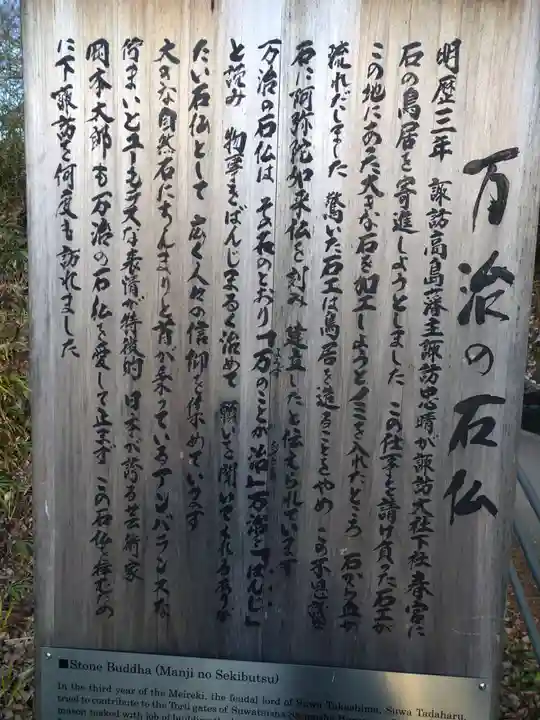 万治の石仏
明歴三年 諏訪高島藩主諏訪忠晴が諏訪大社下社春宮に
石の鳥居を寄進しようとしました この仕事を請け負った石工が
この地にあった大きな石を加工しようとノミを入れたところ 石から血が
流れだしました 驚いた石工は鳥居を造ることをやめ この不思議な
石に阿弥陀如来仏を刻み 建立したと伝えられています
万治の石仏は その名のとおり「万のことが治」万治を「ばんじ」
と読み 物事をばんじまるく治めて 願いを聞いてくれるありが
たい石仏として 広く人々の信仰を集めています
大きな自然石にちんまりと首が乗っているアンバランスな
佇まいとユーモラスな表情が特徴的 日本が誇る芸術家
岡本太郎も万治の石仏を愛して止まず この石仏を拝むため
に下諏訪を何度も訪れました
■Stone Buddha (Manji no Sekibutsu)
In the third year of the Meireki, the feudal lord of Suwa Takashima, Suwa Tadaharu,
tried to contribute to the Torii gates of Suwataisha
mason tasked with job of